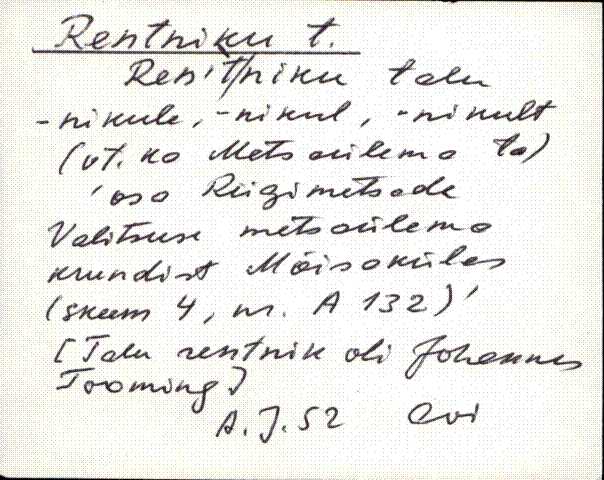 Rentniku t.
Ren't/niku talu
-nikule, -nikul, -nikult
(vt. ka Metsaülema ta)
'osa Riigimetsade
Valitsuse metsaülema
krundist Mõisakülas
(skeem 4, nr. A 132)'
[Talu rentnik oli Johannes
Tooming]
A. J. 52 Avi